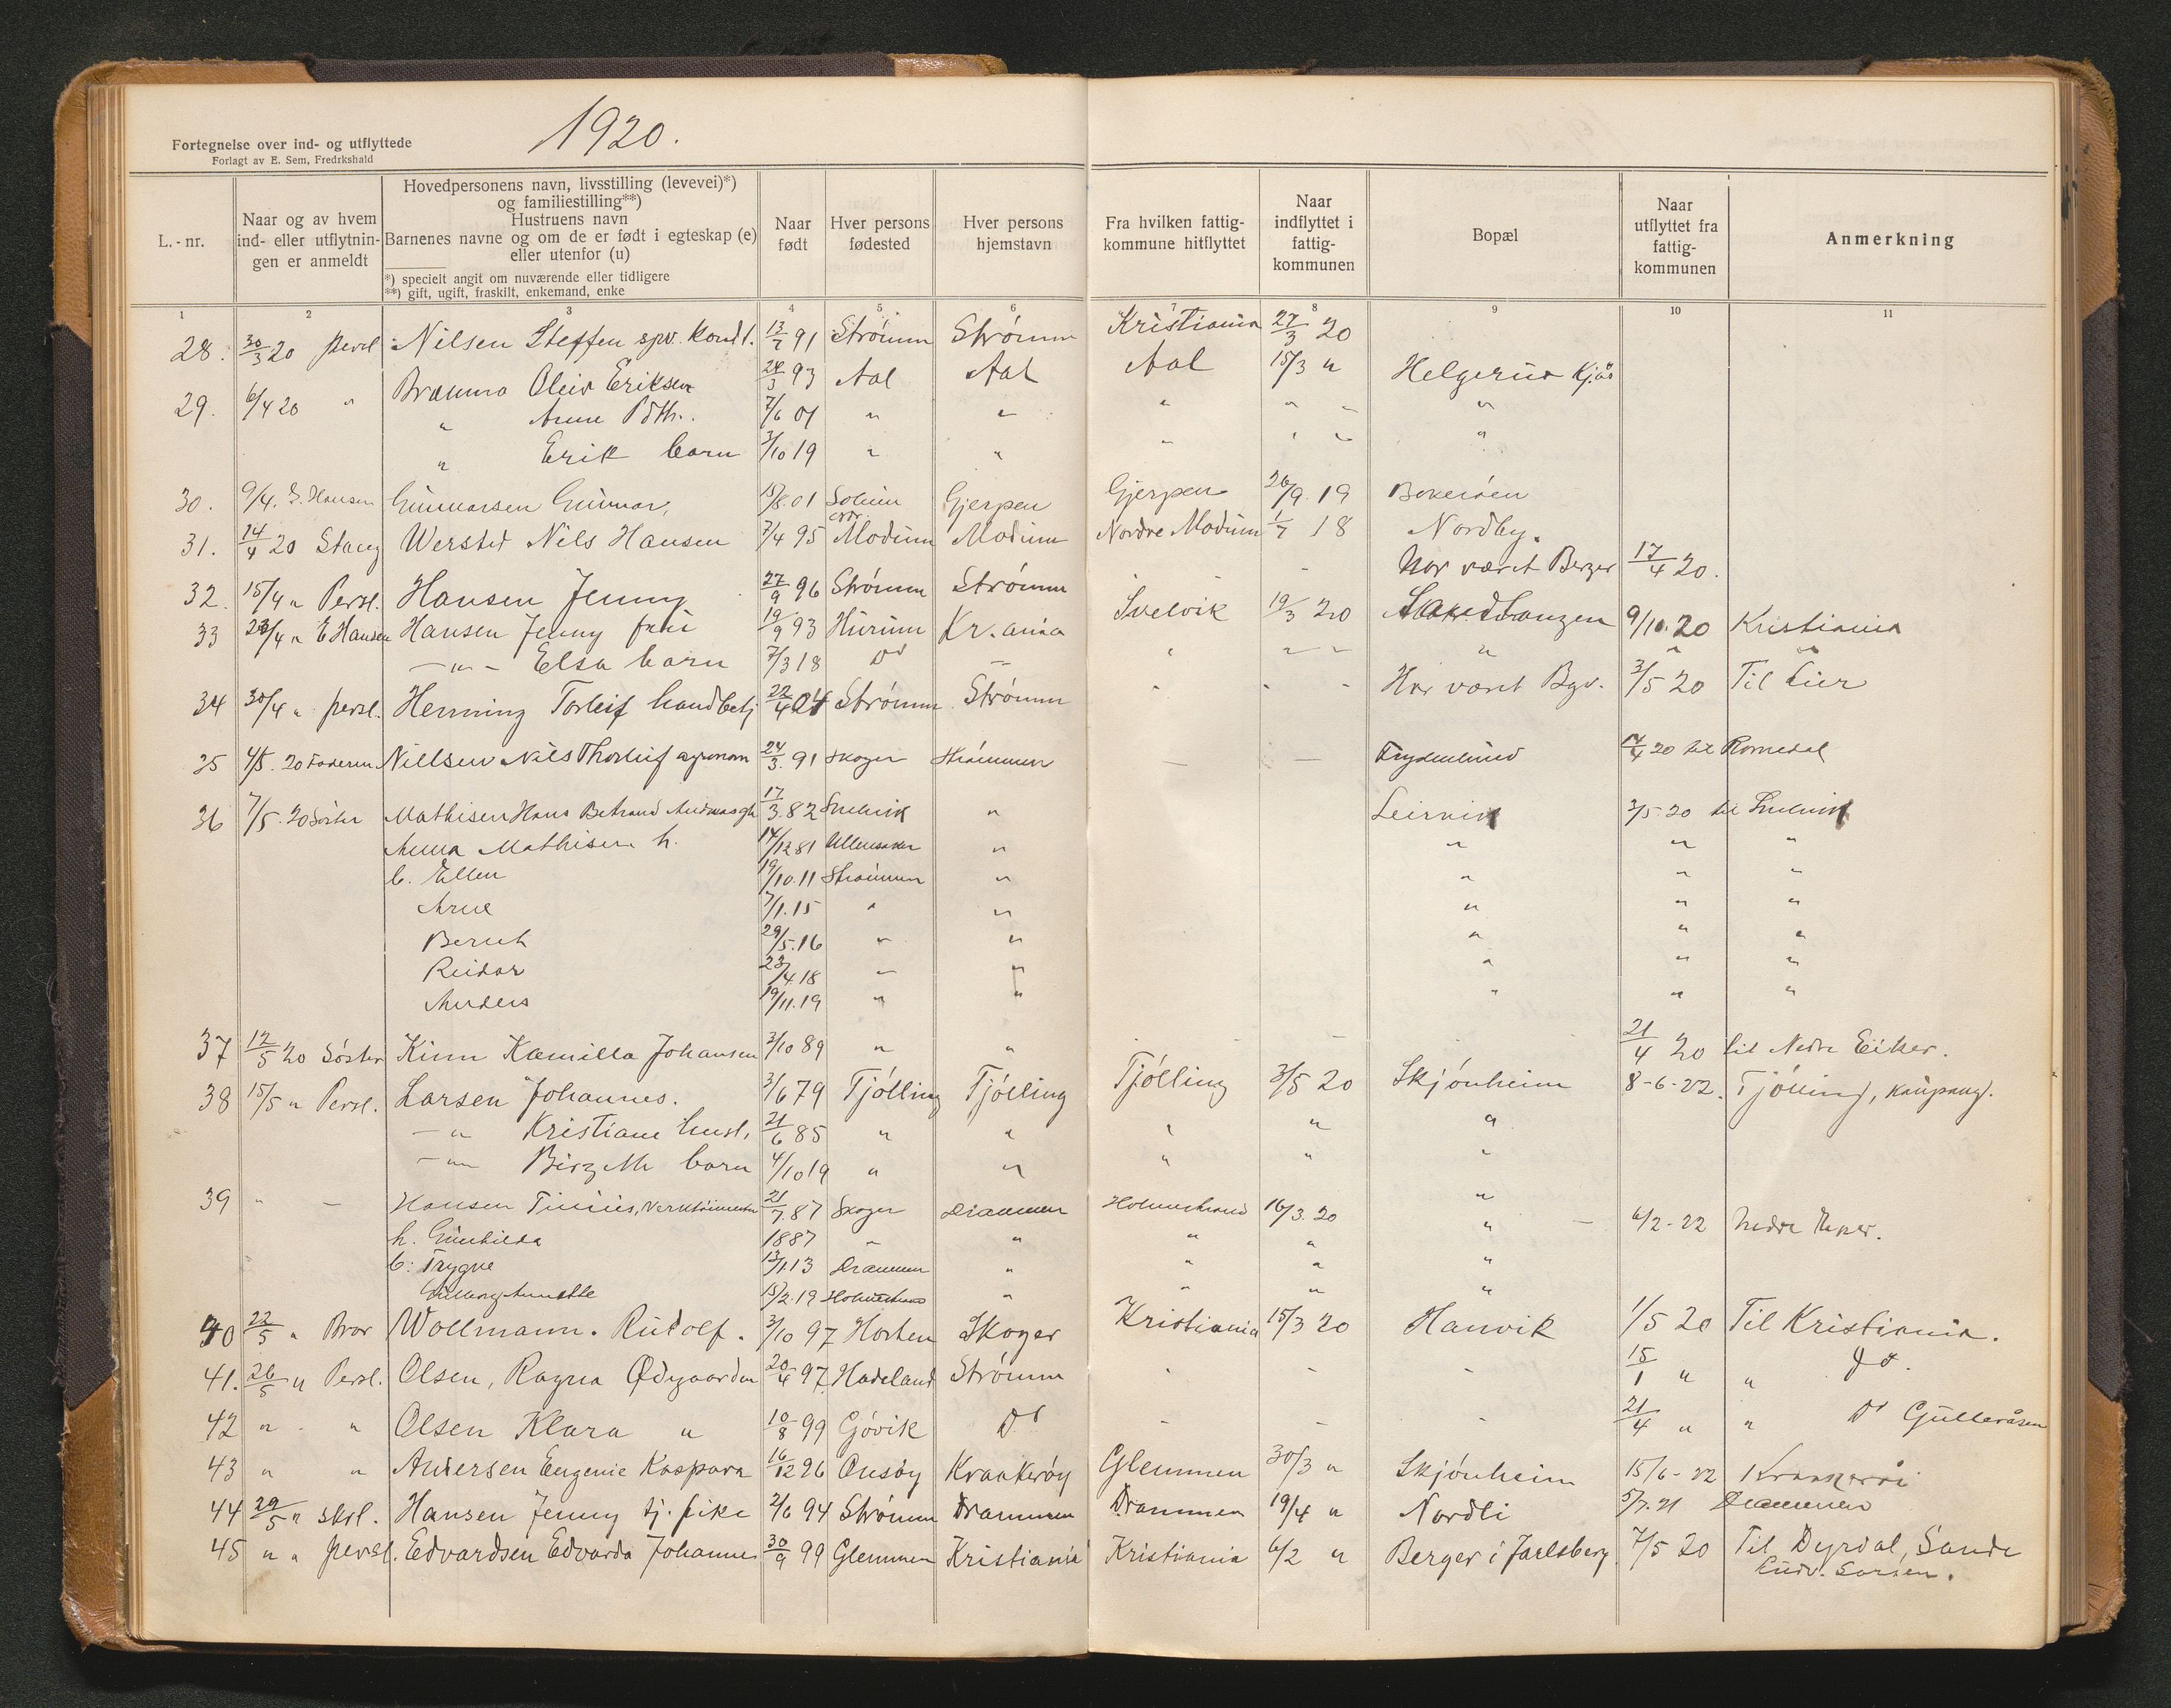 1920.
Fortegnelse over ind- og utflyttede
Forlagt av E. Sem, Fredrkshald
L.-nr.
Naar og av hvem ind- eller utflytnin-gen er anmeldt
Hovedpersonens navn, livsstilling (levevei)*)
og familiestilling**)
Hustruens navn
Barnenes navne og om de er født i egteskap (e)
eller utenfor (u)
*) specielt angit om nuværende eller tidligere
**) gift, ugift, fraskilt, enkemand, enke
Naar født
Hver persons fødested
Hver persons hjemstavn
Fra hvilken fattig-kommune hitflyttet
Naar indflyttet i fattig-kommunen
Bopæl
Naar utflyttet fra fattig-kommunen
Anmerkning
1 2 3 4 5 6 7 8 9 10 11
28. 30/3 20 persl Nilsen Steffen spv. kondt. 13/7 91 Strömm Strömm Kristiania 27/3 20
29. 6/4 20 " Bramma Oleiv Eriksen 28/3 93 Aal Aal Aal 15/3 " Helgerud Kjäs
" Anne Pdtr. 7/6 01 " " " " " "
" Erik barn 3/10 19 " " " " " "
30. 9/4. G. Hansen Gunnarsen Gunnar, 15/8.01 Solum Gjerpen Gjerpen 26/9.19 Bokeröen
31. 14/4 20 Stang Wersted Nils Hansen 7/4 95 Modum Modum Nordre Modum 1/7 18 Nordby.
32. 15/4 " Persl. Hansen Jenny 27/9 96 Strömm Strömm - Har været Berger 17/4 20.
33 23/4 " E Hansen Hansen Jenny fru 19/9 93 Hurum Kr.ania Svelvik 19/3 20 9/10.20 Kristiania
-"- Elsa barn 7/3 18 Do - " " " " " "
34 30/4 " persl. Henning Torleif handbetj 22/4 04 Strömm Strömm " " - Har været Bgr. 3/5 20 Til Lier
35 4/5. 20 Faderen Nillsen Nils Thorleif agronom 24/3.91 Skoger Strömmen - - Frydenlund 17/4 20 til Romedal
36 7/5.20 Söster Mathisen Hans Betrand Andreas gh 17/3.82 Svelvik " Leirvik 3/5 20 til Svelvik
Anna Mathisen h. 14/12 81 Ullensaker " " " "
b. Ellen 19/10.11 Strömmen " " " "
Arne 7/1.15 " " " " "
Bernt 29/5.16 " " " " "
Reidar 23/4 18 " " " " "
Anders 19/11.19 " " " " "
37 12/5 20 Söster Kinn Kamilla Johansen 3/10 89 " " - - 21/4 20 til Nedre Eiker.
38 15/5 " Persl. Larsen Johannes. 3/6 79 Tjölling Tjölling Tjölling 3/5 20 Skjönheim 8-6-22. Tjölling, Kaupang.
-" Kristiane hust. 21/6 85 " " " " "
-" Birgeth barn 4/10 19 " " " " "
39 " - Hansen Tinius, Verktöimester 21/7.87 Skoger Drammen Holmestrand 16/3.20 " 6/2-22 Nedre Eiker.
h. Gunhilda 1887 " " " " "
b: Trygve 13/1.13 Drammen " " " "
15/2.19 Holmestrand " " " "
40 22/5 " Bror Wollmann. Rudolf. 3/10 97 Horten Skoger Kristiania 15/3 20 Hanvik 1/5 20 Til Kristiania.
41. 26/5 " Persl. Olsen, Ragna Ødegaarden 20/4 97 Hadeland Strömm - - - 15/1 " " Do.
42 " " Olsen Klara " 10/8 99 Gjövik Do - - - 21/4 " " Do Gulleråsen
43 " " Andersen Eugenie Kaspara 16/12 96 Onsöy Kraakeröy Glemmen 30/3 " Skjönheim 15/6-22 Kraakeröi
44 29/5 " skrl. Hansen Jenny tj. pike 2/6 94 Strömm Drammen Drammen 19/4 " Nordli 5/7.21 Drammen
45 " " persl. Edvardsen Edvarda Johanne 30/9 99 Glemmen Kristiania Kristiania 6/2 " Berger i Jarlsberg 7/5 20 Til Dyrdal, Sande